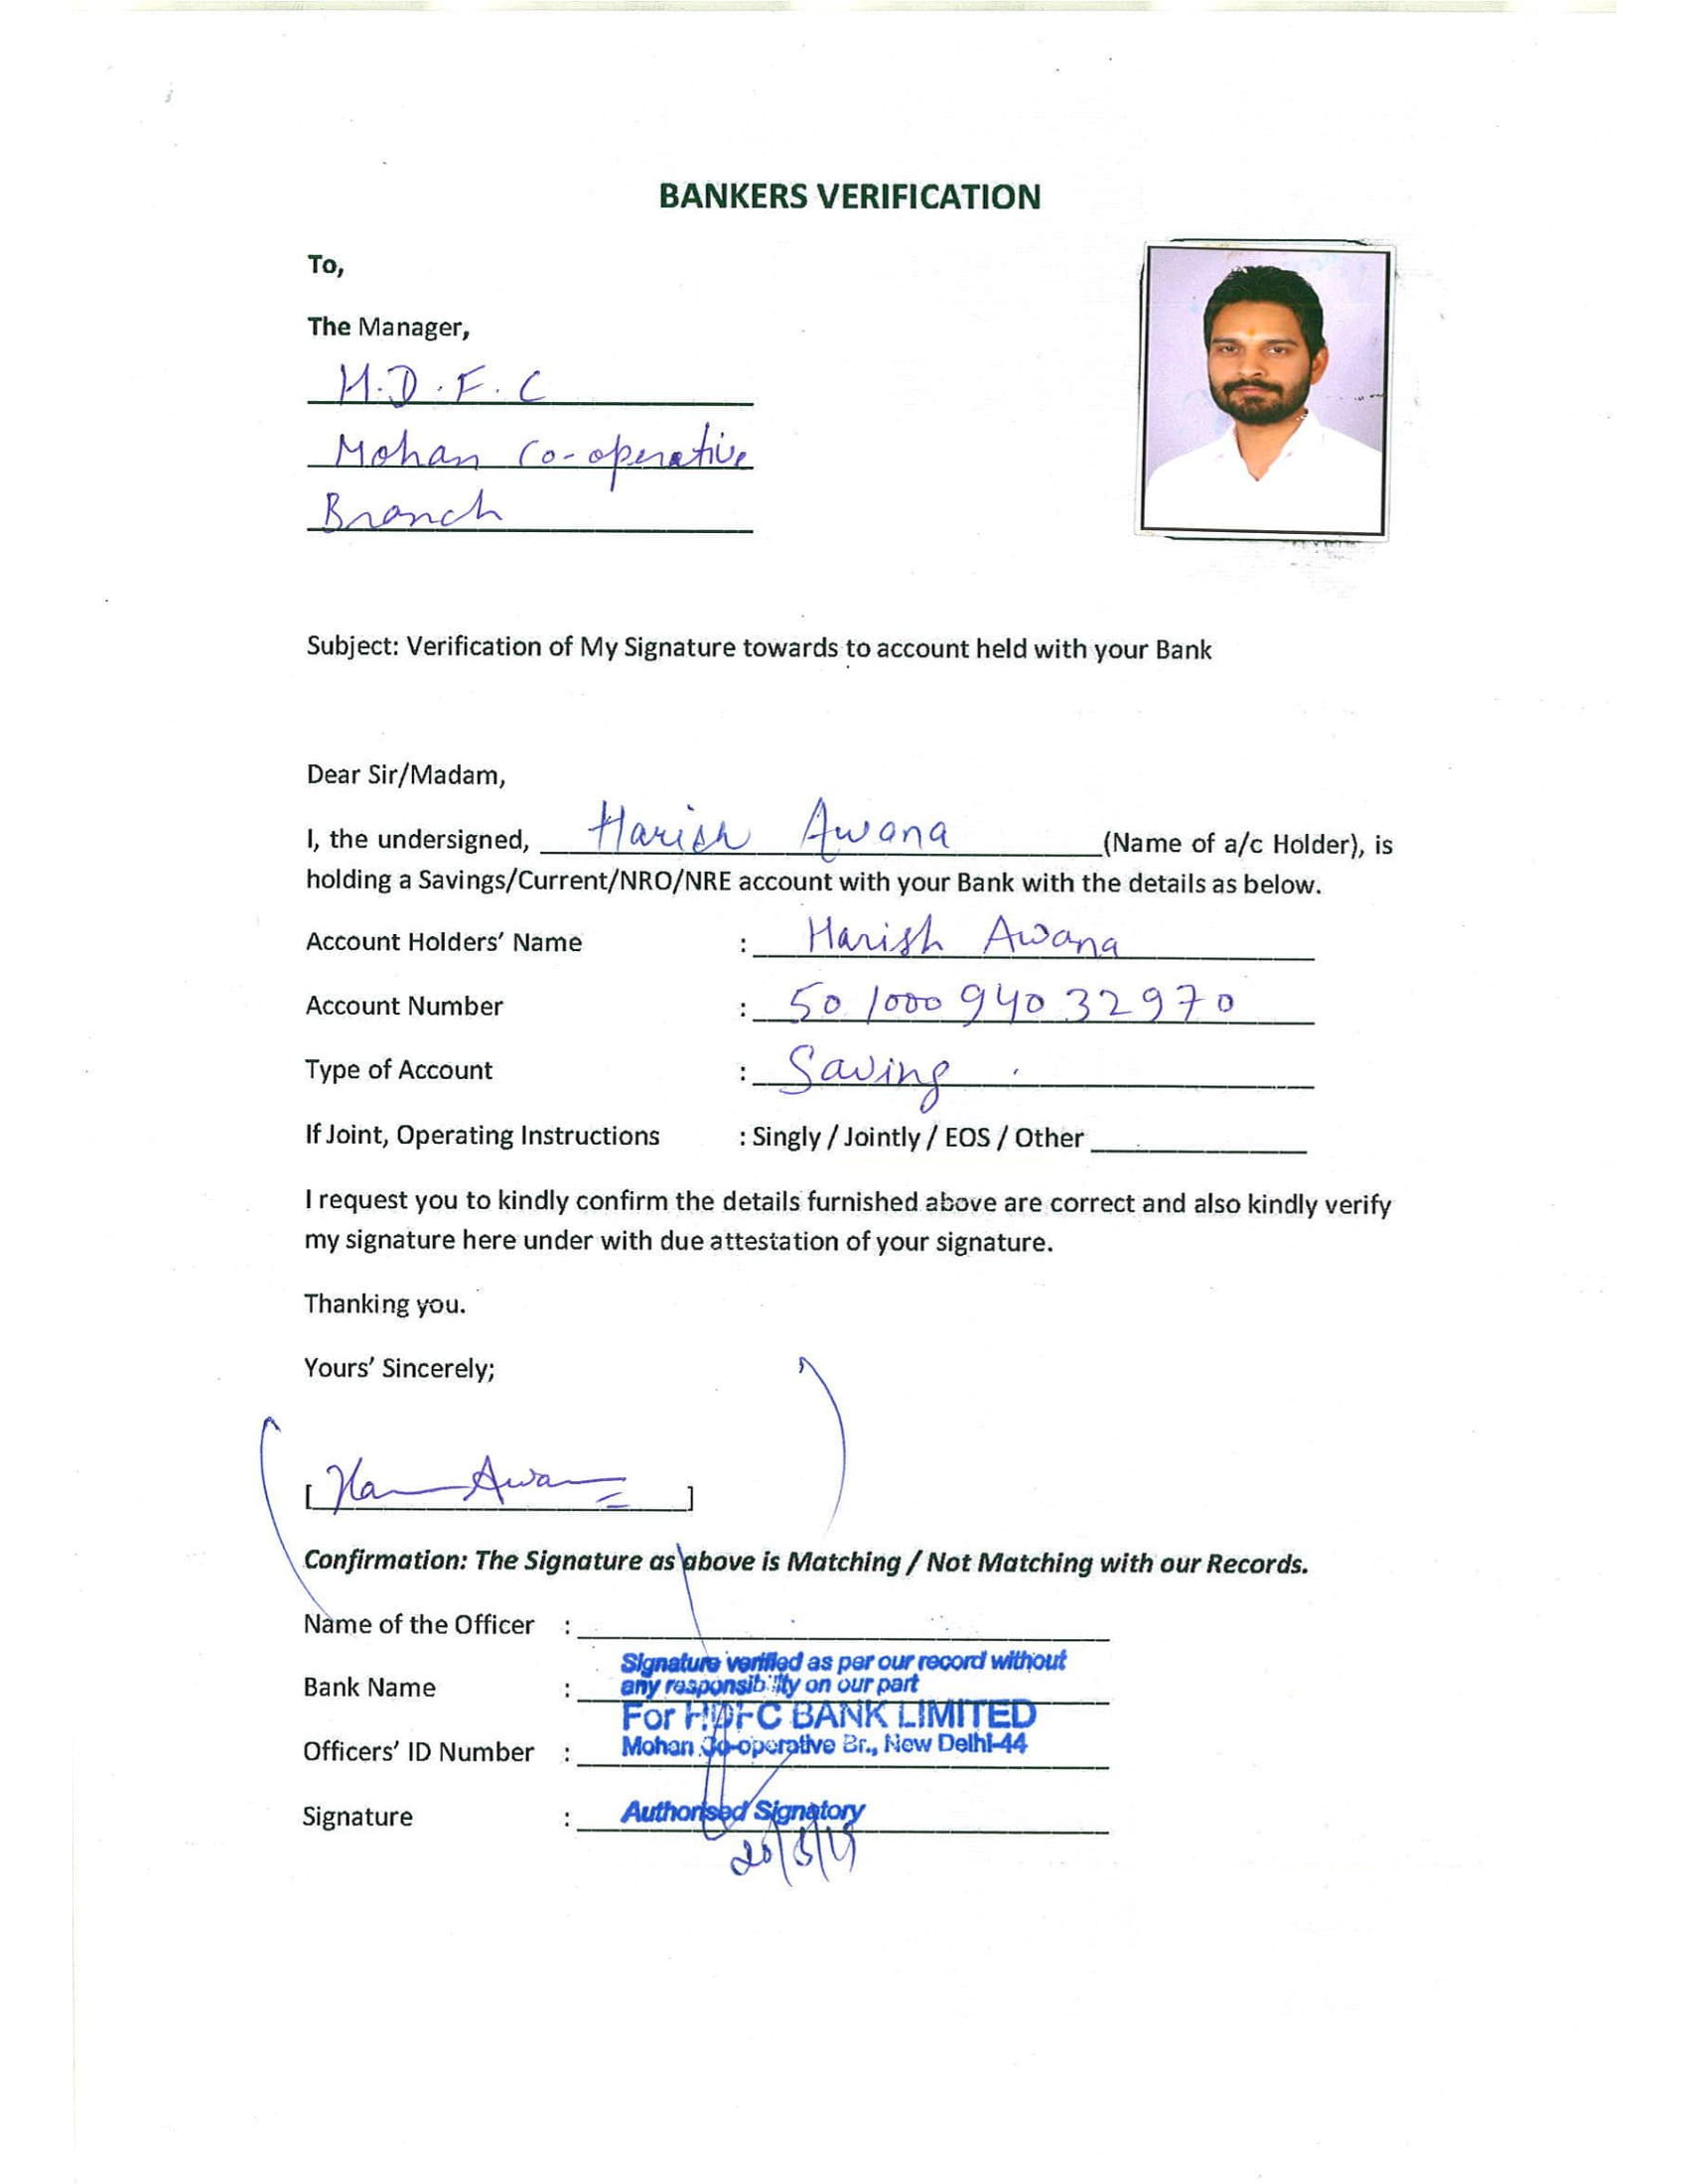 BANKERS VERIFICATION
To,
The Manager,
H.D.F.C
Mohan Co-operative
Branch
Subject: Verification of My Signature towards to account held with your Bank
Dear Sir/Madam,
I, the undersigned, Harish Awana (Name of a/c Holder), is
holding a Savings/Current/NRO/NRE account with your Bank with the details as below.
Account Holders' Name : Harish Awana
Account Number : 50100094032970
Type of Account : Saving
If Joint, Operating Instructions : Singly / Jointly / EOS / Other
I request you to kindly confirm the details furnished above are correct and also kindly verify
my signature here under with due attestation of your signature.
Thanking you.
Yours' Sincerely;
[ Awan ]
Confirmation: The Signature as above is Matching / Not Matching with our Records.
Name of the Officer :
Signature verified as per our record without
Bank Name : any responsibility on our part
For HDFC BANK LIMITED
Officers' ID Number : Mohan Co-operative Br., New Delhi-44
Signature : Authorised Signatory